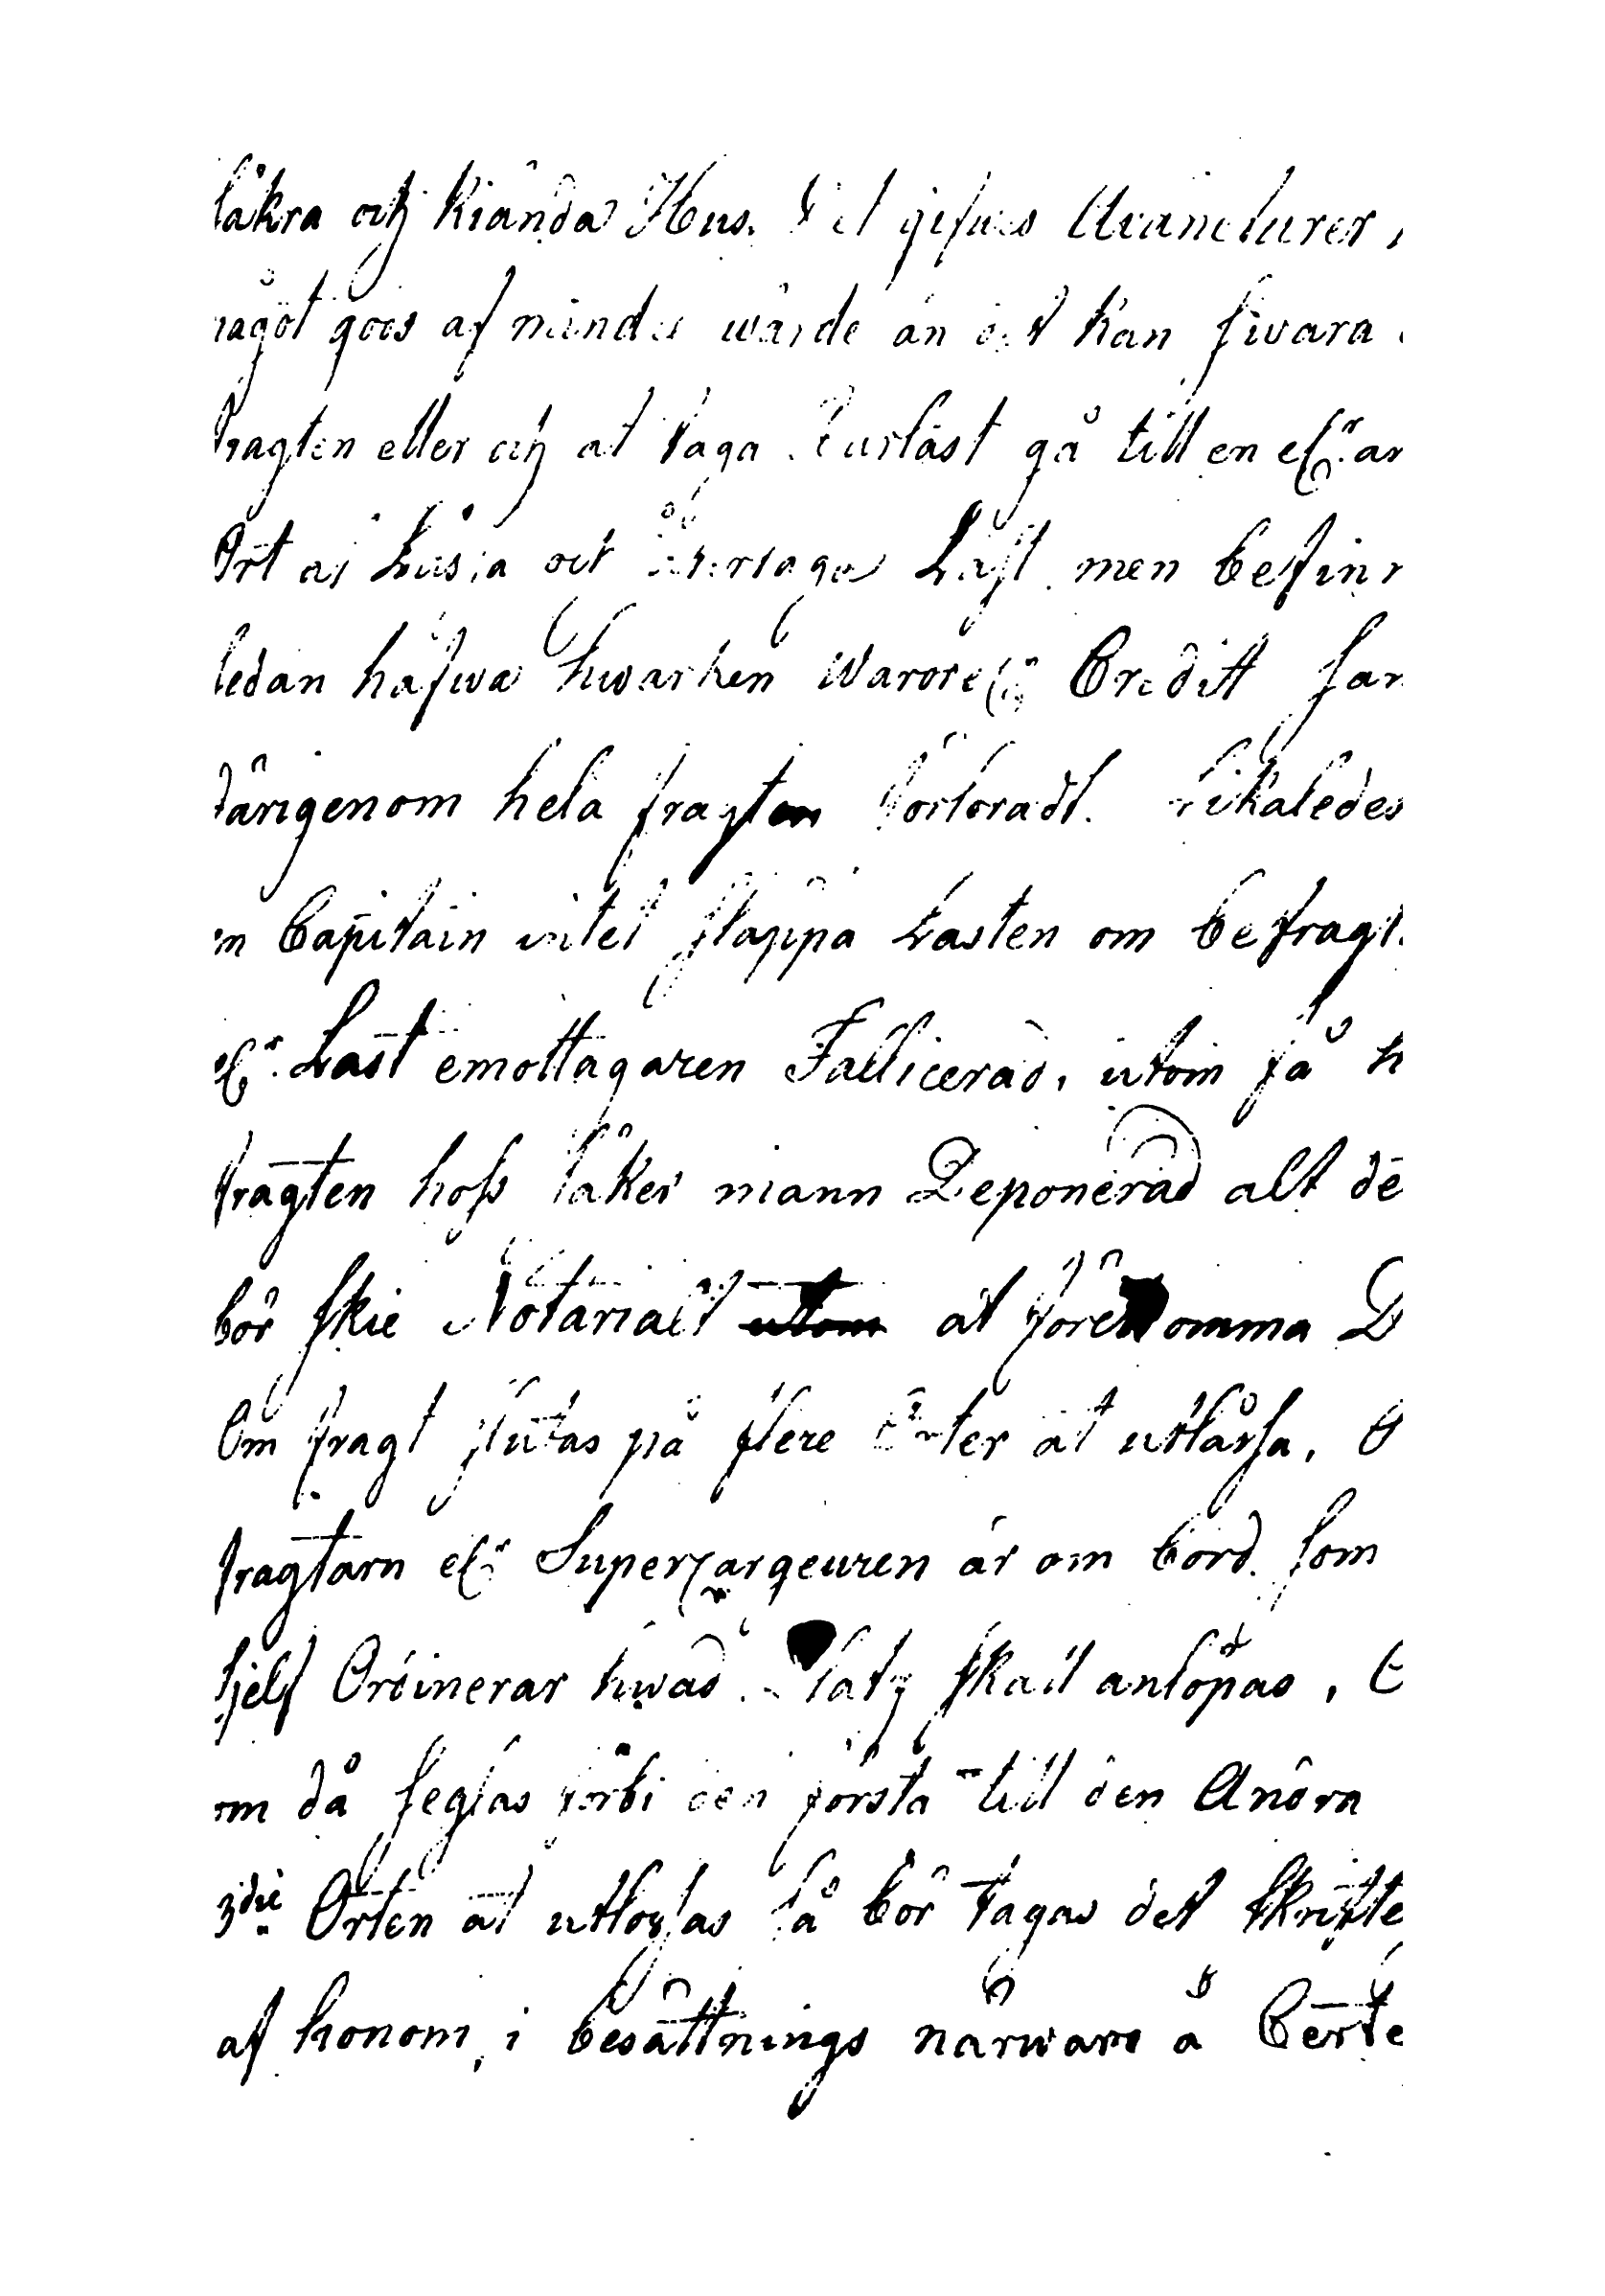 säkra och kiända Hus. Det gifwes Avanturer,
något goos af mindre wärde än det kan swara
fragten eller och at taga Barlast gå till en elr an
Ort at Lusia och återtaga Last men befinn
sedan hafwa hwarken Waror elr Credit fan
därigenom hela fragten förloradt. Likaledes
en Capitain intet släppa Lasten om befragt
elr Last emottagaren Fallicerad, utom så h
fragten hoss säker mann Deponerad alt de
bör skie Notarialt utom at förekomma D
Om fragt slutas på flere Orter at utlåssa, O
fragtarn elr Supercargeuren är om bord som
sjelf Ordinerar hwad Platz skall anlöpas, E
om då seglas förbi den första till den Andra
3die Orten at utlossas så bör tagas det skrifte
af honom, i besättnings närwaro å Certe